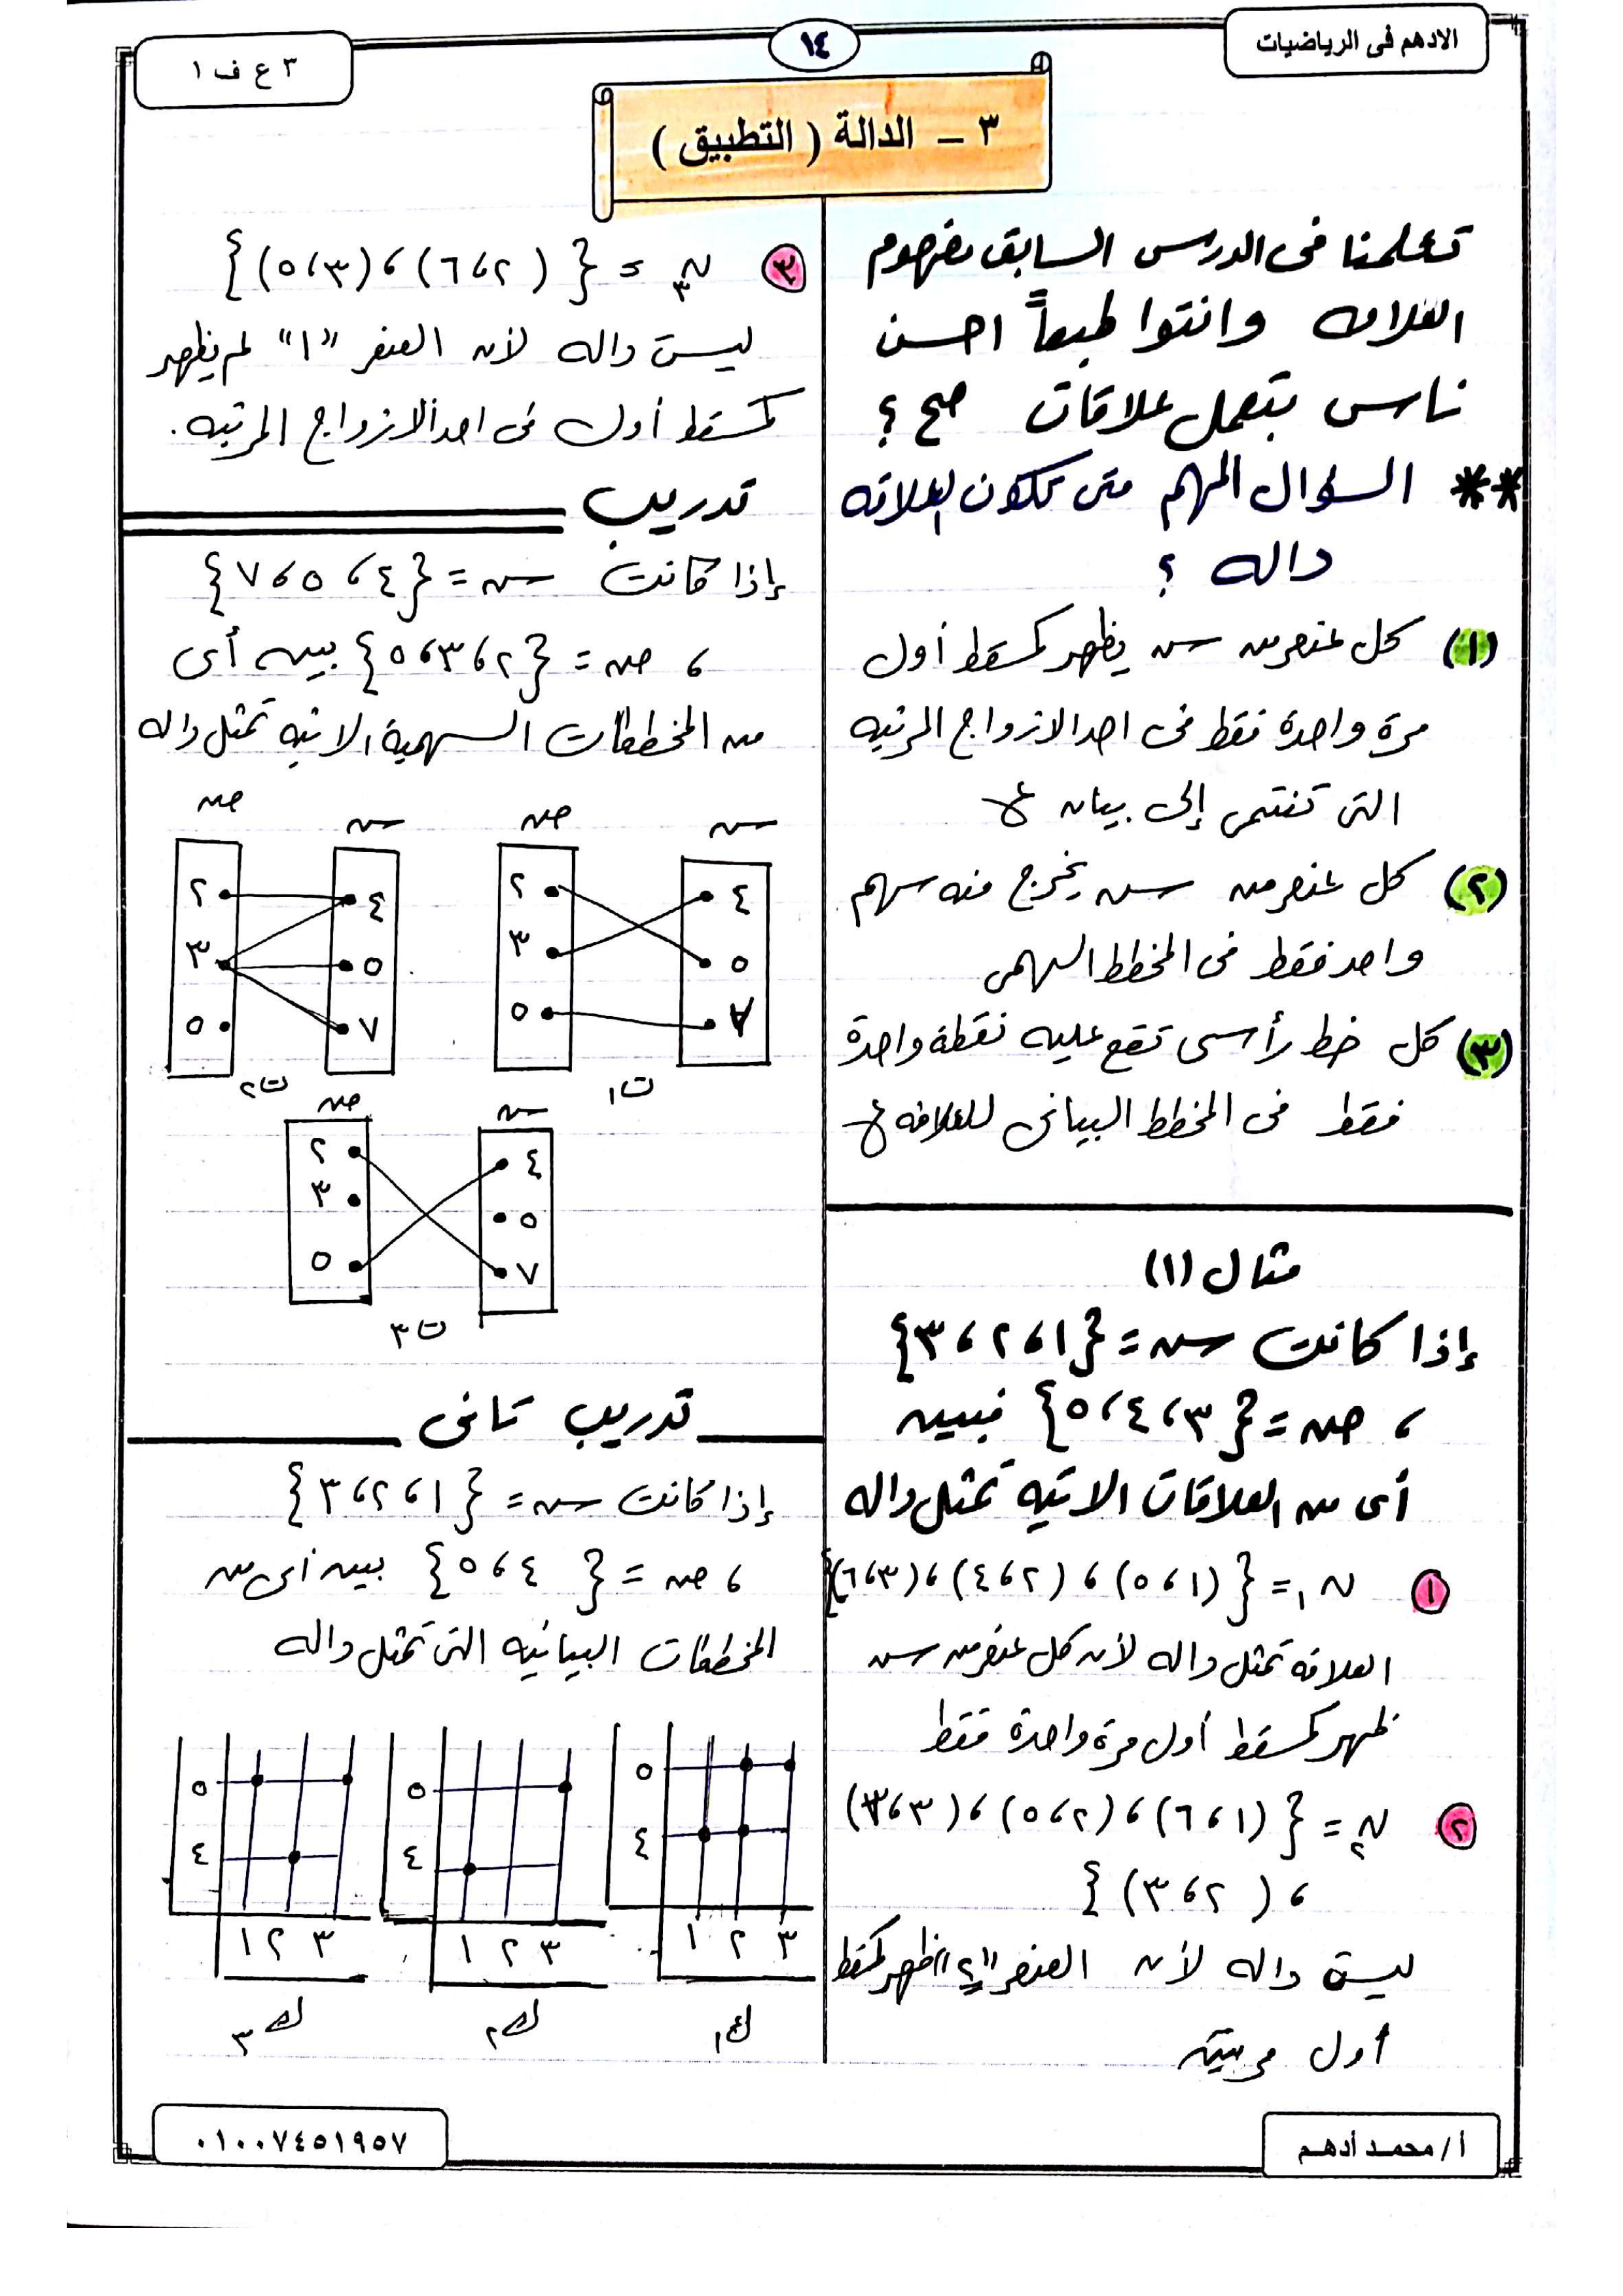 الادهم فى الرياضيات
١٤
٣ ع ف ١
٣ – الدالة ( التطبيق )
تعلمنا فى الدرس السابق مفهوم
العلاقه وانتوا طبعاً احسن
ناس بتعمل علاقات صح ؟
** السؤال المهم متى تكون العلاقه
داله ؟
(١) كل عنصر من س يظهر كمسقط أول
مرة واحدة فقط فى احد الازواج المرتبه
التى تنتمى إلى بيان ع
(٢) كل عنصر من س يخرج منه سهم
واحد فقط فى المخطط السهمى
(٣) كل خط رأسى تقع عليه نقطة واحدة
فقط فى المخطط البيانى للعلاقه ع
مثال (١)
إذا كانت س = {١ ، ٢ ، ٣}
، ص = {٣ ، ٤ ، ٥} فبين
أى من العلاقات الاتيه تمثل داله
١ ن١ = {(١ ، ٥) ، (٢ ، ٤) ، (٣ ، ٦)}
العلاقه تمثل داله لأن كل عنصر من س
ظهر كمسقط أول مرة واحدة فقط
٢ ن٢ = {(١ ، ٦) ، (٢ ، ٥) ، (٣ ، ٣)
، (٢ ، ٣)}
ليست داله لأن العنصر "٢" ظهر كمسقط
أول مرتين
٣ ن٣ = {(٢ ، ٦) ، (٣ ، ٥)}
ليست داله لأن العنصر "١" لم يظهر
كمسقط أول فى احد الازواج المرتبه .
تدريب
إذا كانت س = {٤ ، ٥ ، ٧}
، ص = {٢ ، ٣ ، ٥} بين أى
من المخططات السهمية الاتيه تمثل داله
س ص س ص
٤ ٢ ٤ ٢
٥ ٣ ٥ ٣
٧ ٥ ٧ ٥
ت١ ت٢
س ص
٤ ٢
٥ ٣
٧ ٥
ت٣
تدريب تانى
إذا كانت س = {١ ، ٢ ، ٣}
، ص = {٤ ، ٥} بين أى من
المخططات البيانيه التى تمثل داله
٥ ٥ ٥
٤ ٤ ٤
١ ٢ ٣ ١ ٢ ٣ ١ ٢ ٣
ك١ ك٢ ك٣
أ / محمد أدهم
٠١٠٠٧٤٥١٩٥٧